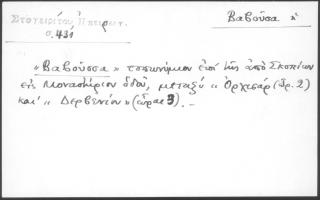 Στουγιρίτου Ἠπειρωτ.
σ. 431
Βαβούσα ἡ
«Βαβοῦσσα» τοπωνύμιον ἐπὶ τῆς ἀπὸ Σκοπίων
εἰς Μοναστήριον ὁδοῦ, μεταξὺ «Ὀρχισάρ (ὥρ. 2)
καὶ «Δερβενίου» (ὧραι 3). –